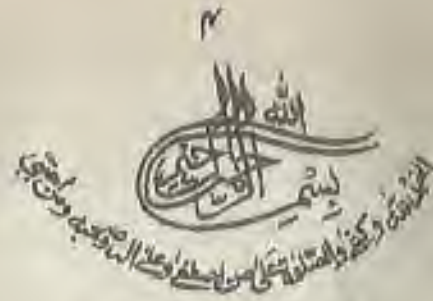 ٣
بسم الله الرحمن الرحيم
الحمد لله وكفى والصلوة على من اصطفى وعلى اله وصحبه ومن